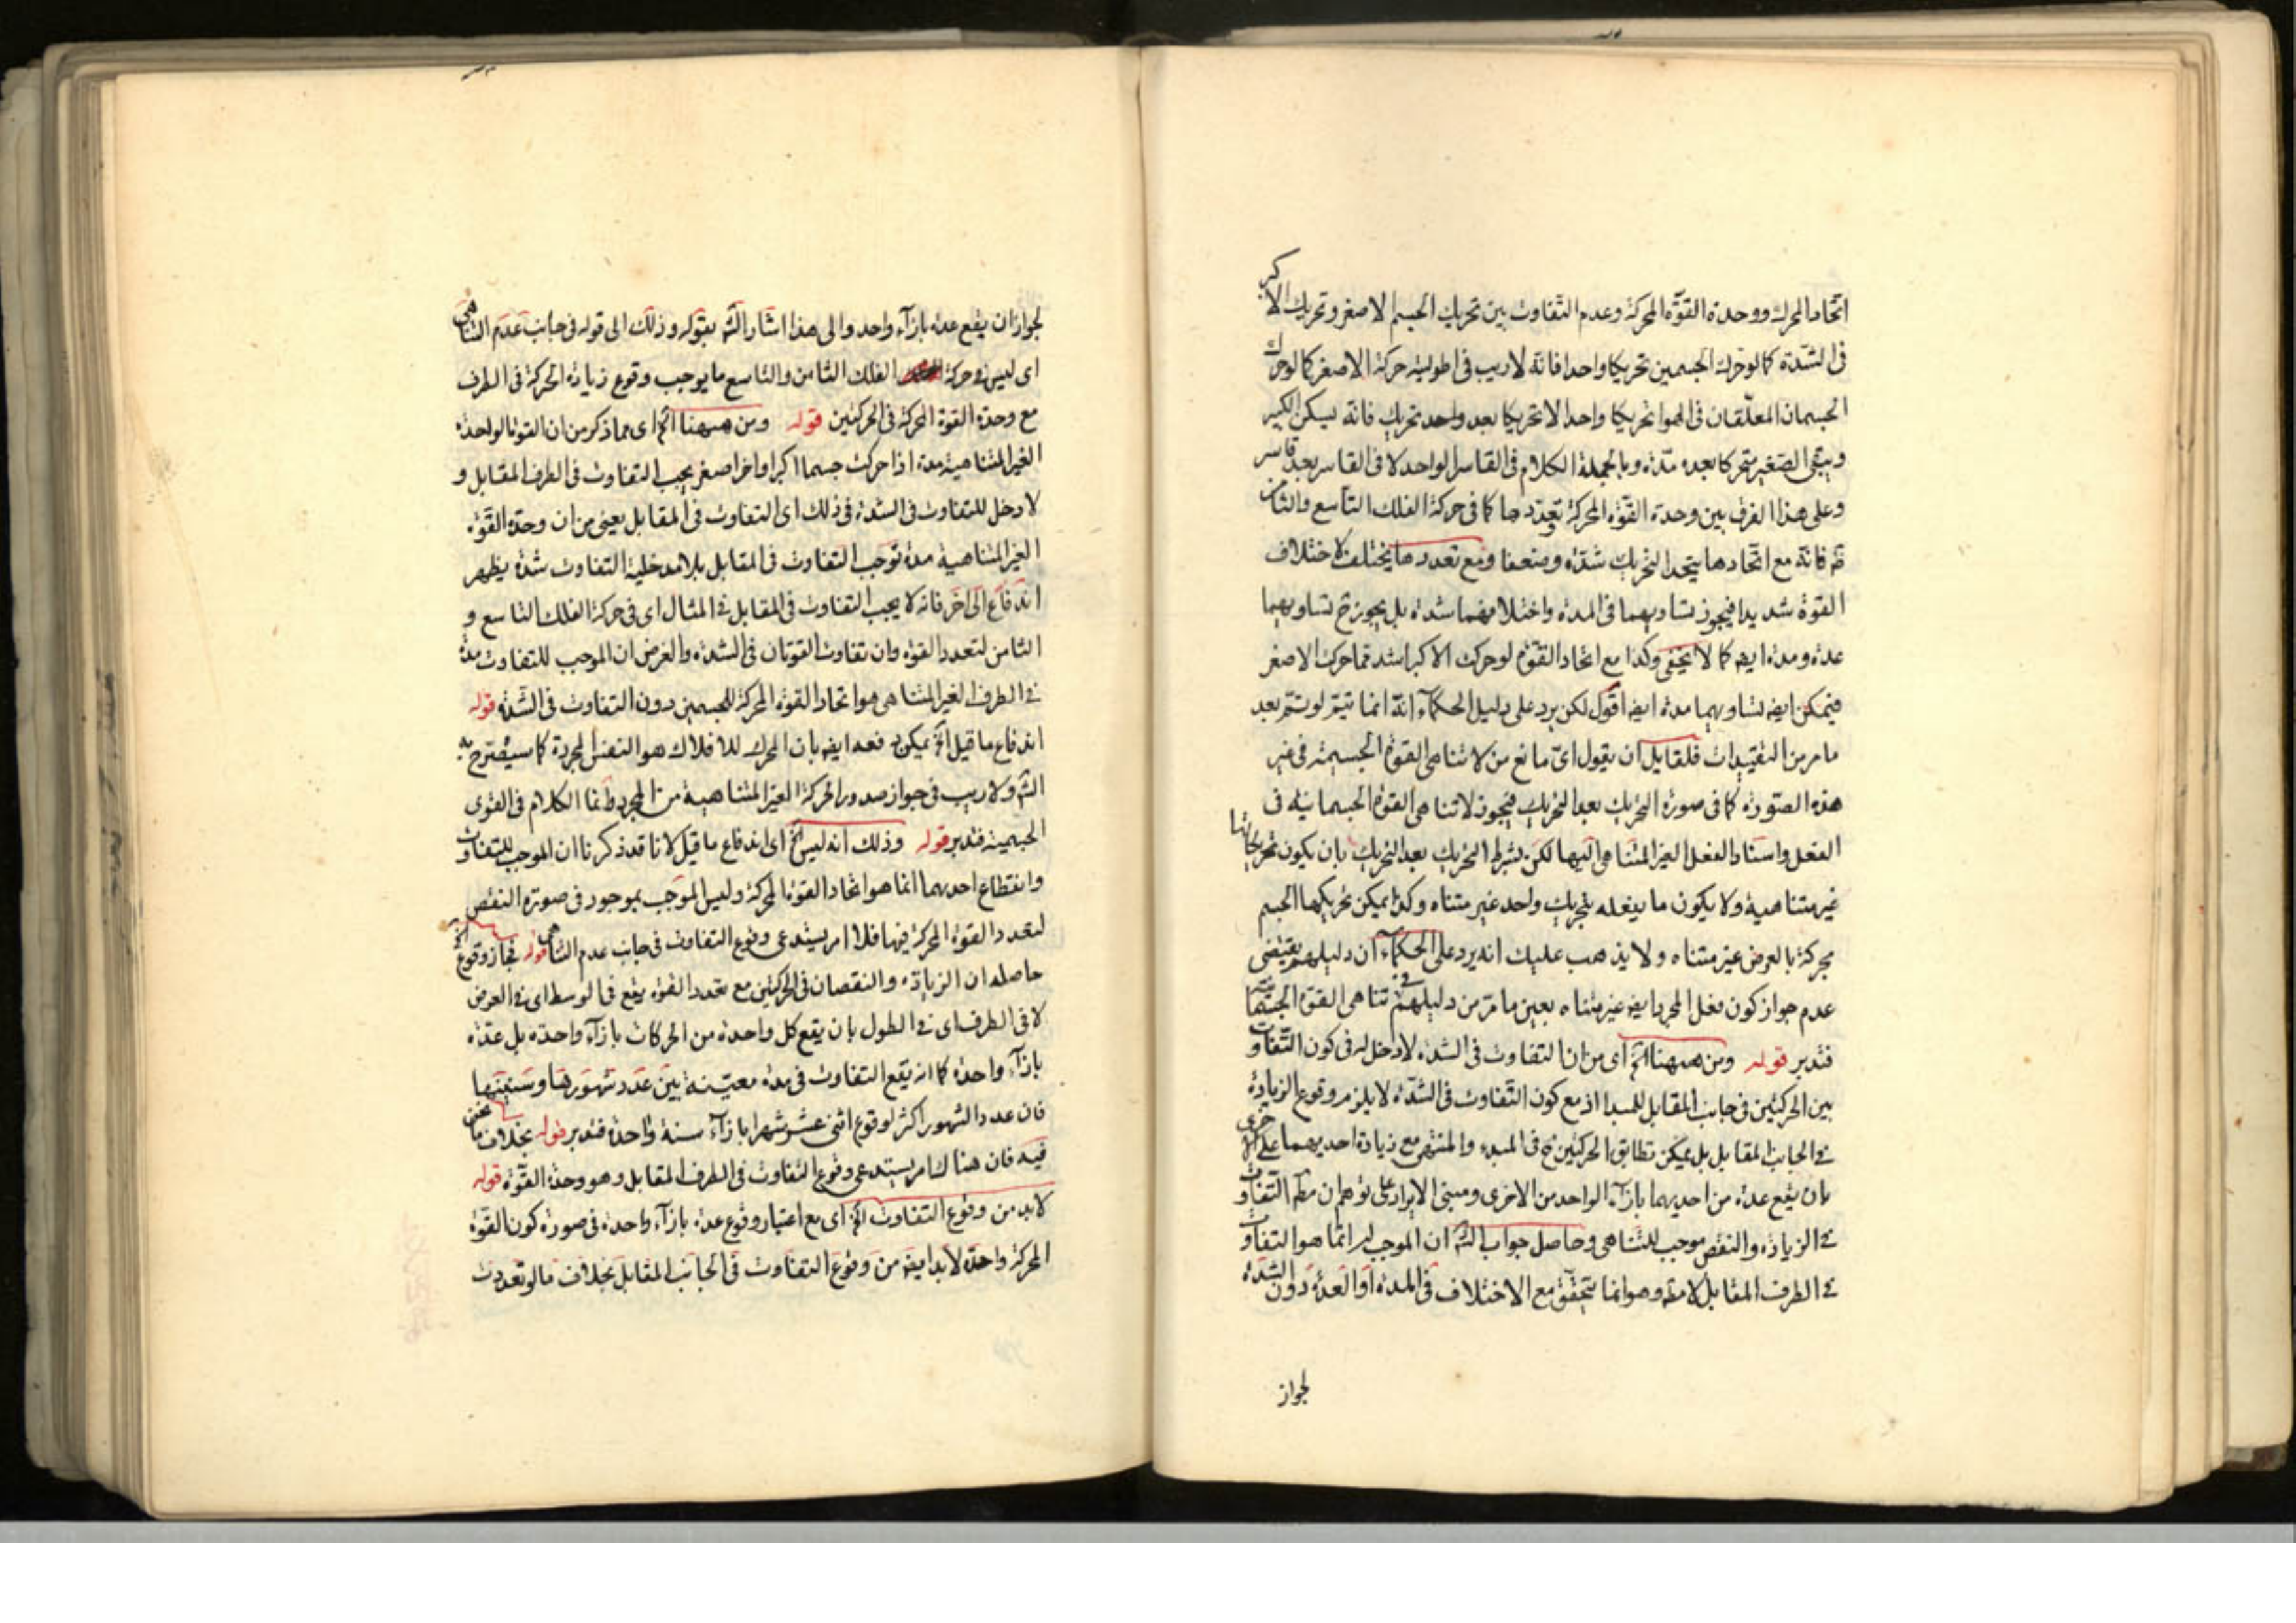 اتحاد المحرك ووحدة القوّة المحركة وعدم التفاوت بين تحريك الجسم الاصغر وتحريك الاكبر
فى الشدّة كما لو حرّك الجسمين تحريكا واحدا فانه لا ريب فى اطولية حركة الاصغر كما لو حرك
الجسمان المعلّقان فى الهوا تحريكا واحدا لا تحريكا بعد واحد تحريك فانه يسكن الكبير
ويبقى الصغير متحركا بعده مدّة وبالجملة الكلام فى القاسر الواحد لا فى القاسر بعد قاسر
وعلى هذا الفرق بين وحدة القوّة المحركة وتعدّدها كما فى حركة الفلك التاسع والثامن
فانه مع اتحادها يتحد التحريك شدّة وضعفا ومع تعددها يختلف لاختلاف
القوة شديدا فيجوز تساويهما فى المدة واختلافهما شدة بل يجوز ح تساويهما
عدة ومدة ايضه كما لا يخفى وكذا مع اتحاد القوّة لو حركت الاكبر اشد مما حركت الاصغر
فيمكن ايضه تساويهما مدة ايضه اقول لكن يرد على دليل الحكمآء انه انما يتم لو ستم بعد
ما مر من التقييدات فلقايل ان يقول اىّ مانع من لا تناهى القوة الجسمية فى غير
هذه الصّورة كما فى صورة التحريك بعد التحريك فيجوز لا تناهى القوة الجسمانية فى
الفعل واستناد الفعل الغير المتناهى اليها لكن بشرط التحريك بعد التحريك بان يكون تحريكاتها
غير متناهية ولا يكون ما يفعله بتحريك واحد غير متناه وكذا يمكن تحريكها الجسم
بحركة بالعرض غير متناه ولا يذهب عليك انه يرد على الحكمآء ان دليلهم يقتضى
عدم جواز كون فعل المجرد ايضه غير متناه بعين ما مرّ من دليلهم فى تناهى القوة
فتدبر قوله ومن ههنا الخ اى من ان التفاوت فى الشدة لا دخل له فى كون التّفاوت
بين الحركتين فى جانب المقابل للمبدا اذ مع كون التّفاوت فى الشدّة لا يلزم وقوع الزيادة
فى الجانب المقابل بل يمكن تطابق الحركتين ح فى المبدء والمنتهى مع زيادة احديهما على الاخرى
بان يقع عدة من احديهما بازآء الواحد من الاخرى ومبنى الايراد على توهم ان مطم التّفاوت
فى الزيادة والنقص موجب للتناهى وحاصل جواب الشّه ان الموجب له انّما هو التفاوت
فى الطرف المقابل لا مطم وهو انما يتحقّق مع الاختلاف فى المدة او العدة دون الشدة
لجواز
لجواز ان يقع عدة بازآء واحد والى هذا اشار الشّه بقوله وذلك الى قوله فى جانب عدم التناهى
اى ليس فى حركة الفلك الثامن والتاسع ما يوجب وقوع زيادة الحركة فى الطرف
مع وحدة القوة المحركة فى الحركتين قوله ومن ههنا الخ اى مما ذكر من ان القوة الواحدة
الغير المتناهية مدة اذا حركت جسما اكبر واخر اصغر يجب التفاوت فى الطرف المقابل و
لا دخل للتفاوت فى الشدة فى ذلك اى التفاوت فى المقابل يعنى من ان وحدة القوّة
الغير المتناهية مدة توجب التفاوت فى المقابل بلا مدخلية التفاوت شدة يظهر
اندفاع الى اخر فانه لا يجب التفاوت فى المقابل فى المثال اى فى حركة الفلك التاسع و
الثامن لتعدد القوة وان تفاوت القوتان فى الشدة والغرض ان الموجب للتفاوت مدة
فى الطرف الغير المتناهى هو اتحاد القوة المحركة للجسمين دون التفاوت فى الشّدة قوله
اندفاع ما قيل الخ يمكن دفعه ايضه بان المحرك للافلاك هو النفس المجردة كما سيصرح به
الشّه ولا ريب فى جواز صدور الحركة الغير المتناهية من المجرد وانما الكلام فى القوى
الجسمية فتدبر قوله وذلك انه ليس الخ اى اندفاع ما قيل لانا قد ذكرنا ان الموجب للتفاوت
وانقطاع احديهما انما هو اتحاد القوة المحركة وليس الموجب بموجود فى صورة النقض
لتعدد القوة المحركة فيها فلا امر يستدعى وقوع التفاوت فى جانب عدم التناهى قوله فجاز وقوع الخ
حاصله ان الزيادة والنقصان فى الحركتين مع تعدد القوة يقع فى الوسط اى فى العرض
لا فى الطرف اى فى الطول بان يقع كل واحدة من الحركات بازآء واحدة بل عدّة
بازآء واحدة كما انه يقع التفاوت فى مدة معيّنة بين عدد شهورها وسنينها
فان عدد الشهور اكثر لوقوع اثنى عشر شهرا بازآء سنة واحدة فتدبر قوله بخلاف ما نحن
فيه فان هناك امر يستدعى وقوع التفاوت فى الطرف المقابل وهو وحدة القوّة قوله
لابد من وقوع التفاوت الخ اى مع اعتبار وقوع عدة بازآء واحدة فى صورة كون القوّة
المحركة واحدة لابد ايضه من وقوع التفاوت فى الجانب المقابل بخلاف ما لو تعددت